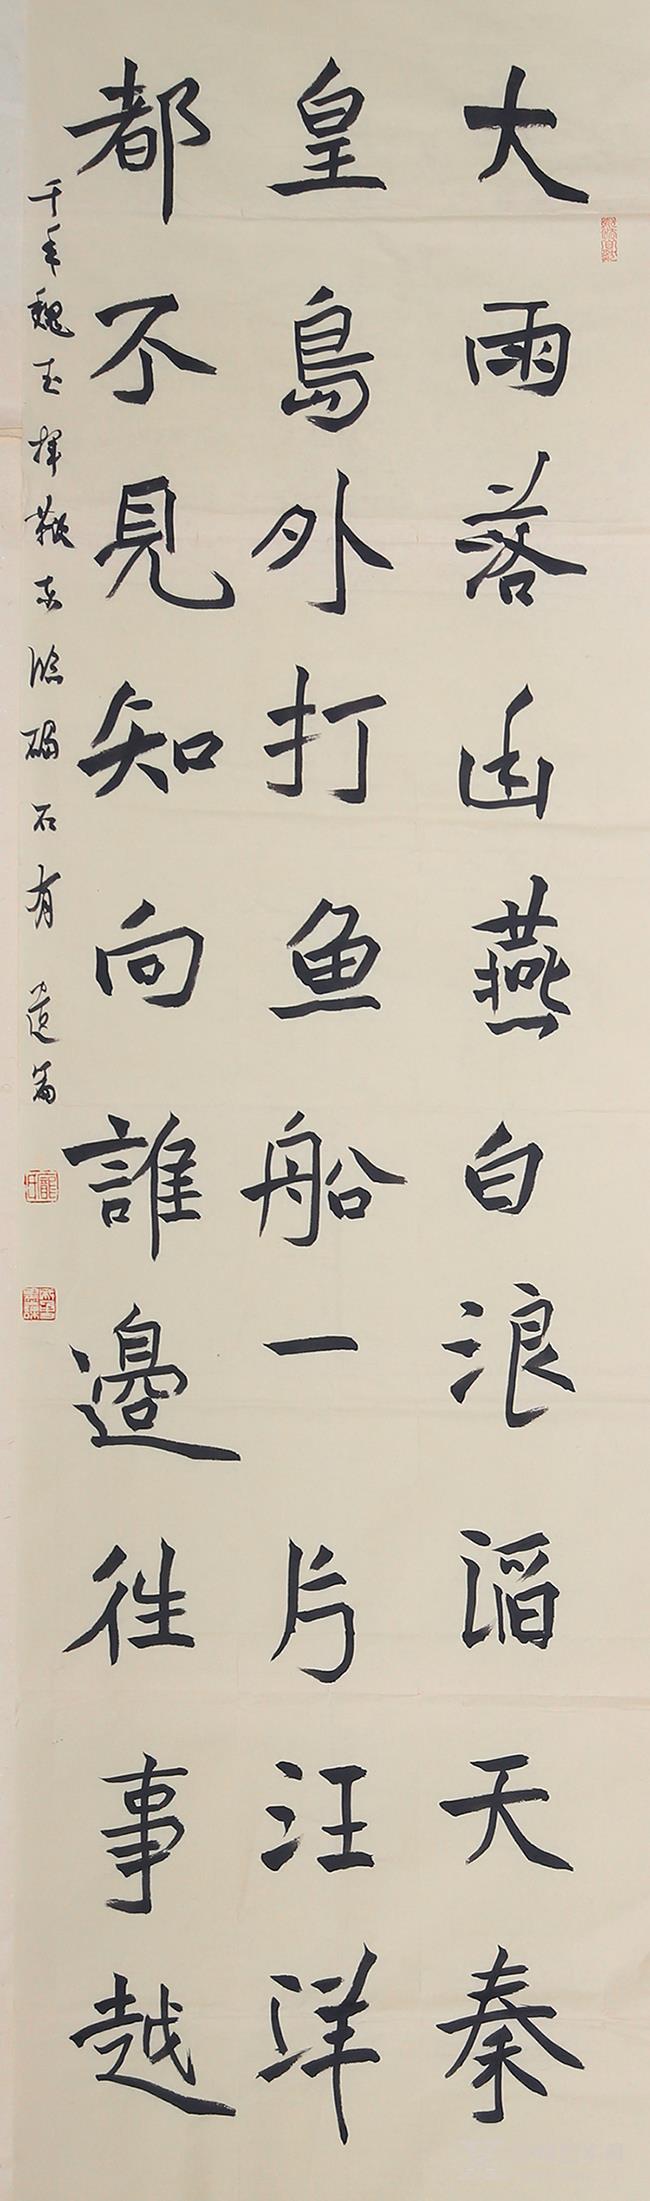 大雨落幽燕白浪滔天秦
皇島外打鱼船一片汪洋
都不見知向誰邊往事越
千年魏武揮鞭东临碣石有遗篇